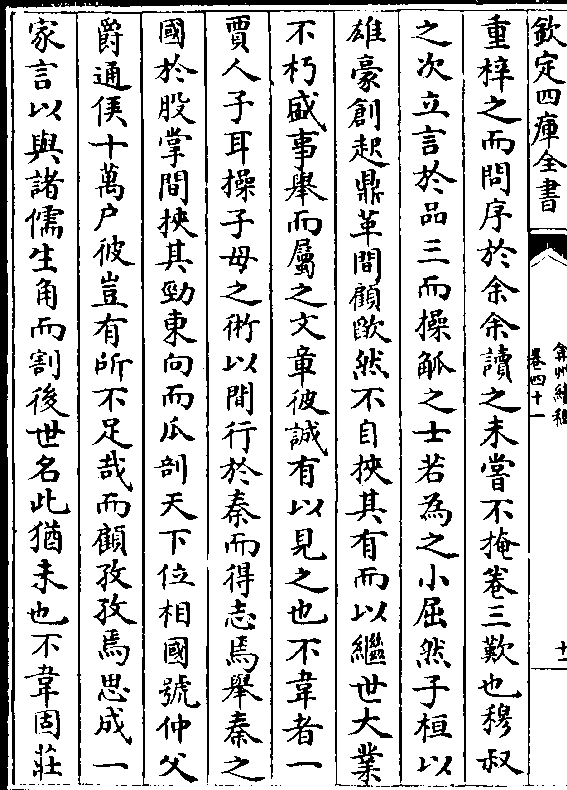 欽定四庫全書
弇州續稿
卷四十一
十二
重梓之而問序於余余讀之未嘗不掩卷三歎也穆叔
之次立言於品三而操觚之士若為之小屈然子桓以
雄豪創起鼎革間顧歐然不自挾其有而以繼世大業
不朽盛事舉而屬之文章彼誠有以見之也不韋者一
賈人子耳操子母之術以間行於秦而得志焉舉秦之
國於股掌間挾其勁東向而瓜剖天下位相國號仲父
爵通侯十萬户彼豈有所不足哉而顧孜孜焉思成一
家言以與諸儒生角而割後世名此猶未也不韋固莊